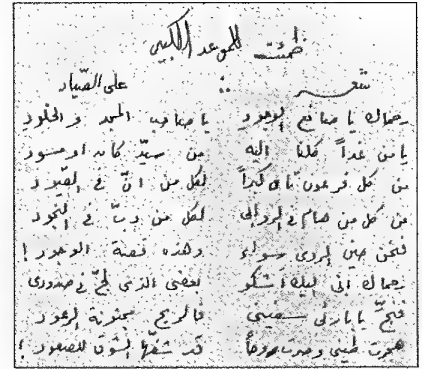 ظمئت للموعد الكبير
شعر : على الصياد
رحماك يا صانع الوجود يا صاحب المجد والخلود
يا من غداً كلنا اليه من سيّد كان او مسود
من كل فرعون كذا لكل من انّ في القيود
من كل من هام في الروابى لكل من دبّ في النجود
فنحن حين الردى سواء وهذه قصة الوجود !
رحماك انى اليك اشكو بعض الذى لجّ فى صدورى
فنجّ يا بارئى سفينى فالريح مجنونة الرعود
هجرت طينى وصرت روحاً قد شفّها الشوق للصعود !